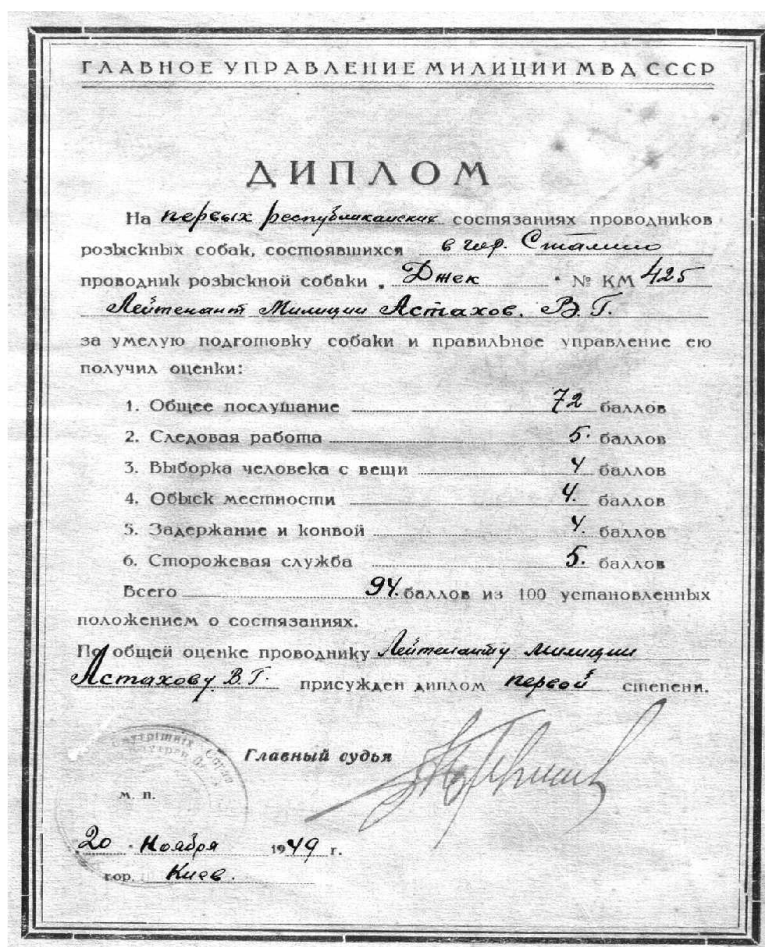 ГЛАВНОЕ УПРАВЛЕНИЕ МИЛИЦИИ МВД СССР
ДИПЛОМ
На первых республиканских состязаниях проводников
розыскных собак, состоявшихся в гор. Сталино
проводник розыскной собаки „Джек“ № КМ 425
Лейтенант Милиции Астахов. В. Г.
за умелую подготовку собаки и правильное управление ею
получил оценки:
1. Общее послушание 72 баллов
2. Следовая работа 5. баллов
3. Выборка человека с вещи 4 баллов
4. Обыск местности 4. баллов
5. Задержание и конвой 4. баллов
6. Сторожевая служба 5. баллов
Всего 94. баллов из 100 установленных
положением о состязаниях.
По общей оценке проводнику Лейтенанту милиции
Астахову В. Г. присужден диплом первой степени.
Главный судья
м. п.
20 Ноября 1949 г.
гор. Киев.